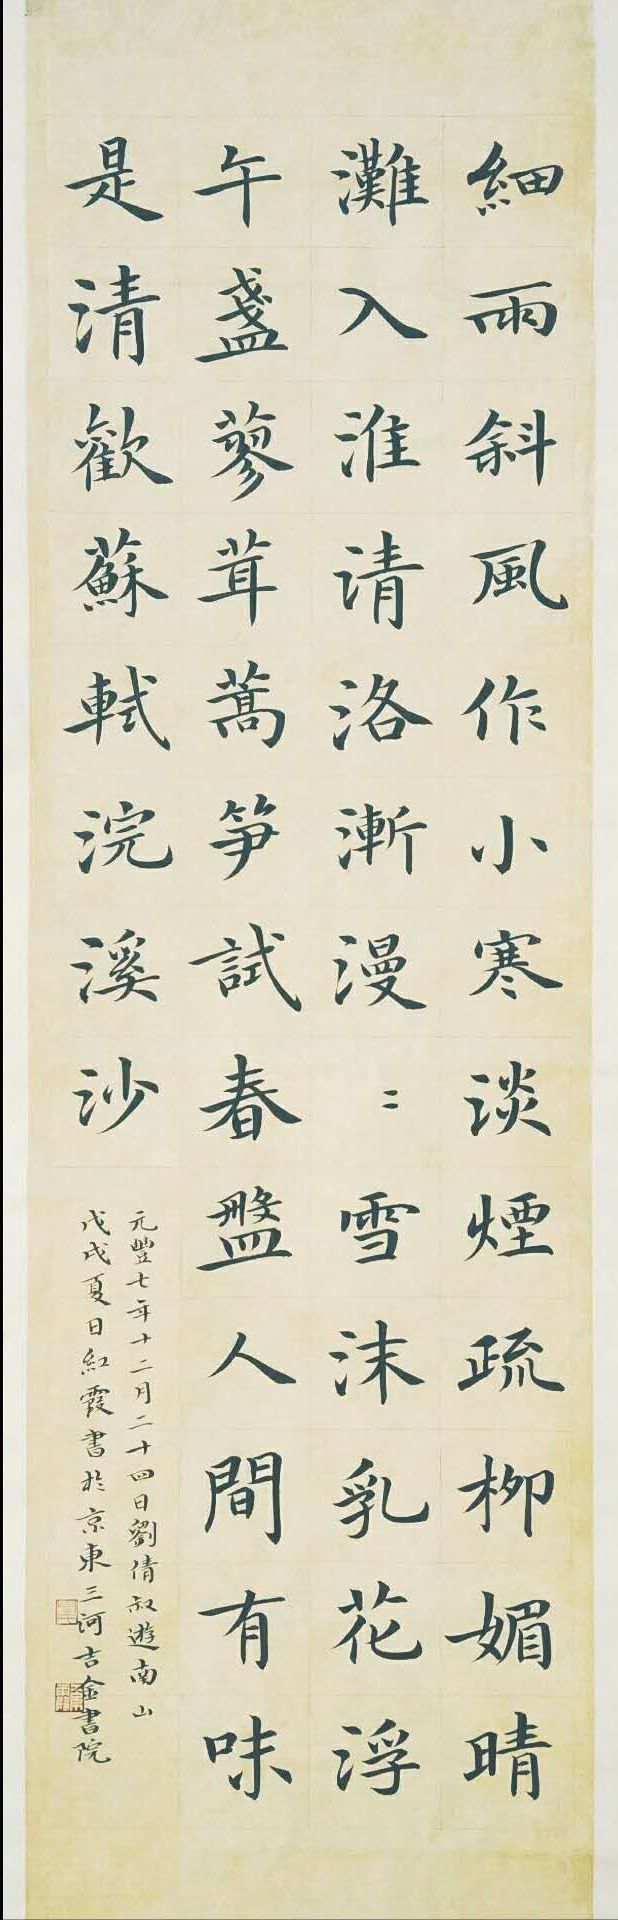 細雨斜風作小寒淡煙疏柳媚晴
灘入淮清洛漸漫〻雪沫乳花浮
午盞蓼茸蒿筍試春盤人間有味
是清歡蘇軾浣溪沙
元豐七年十二月二十四日劉倩叔遊南山
戊戌夏日紅霞書於京東三河吉金書院